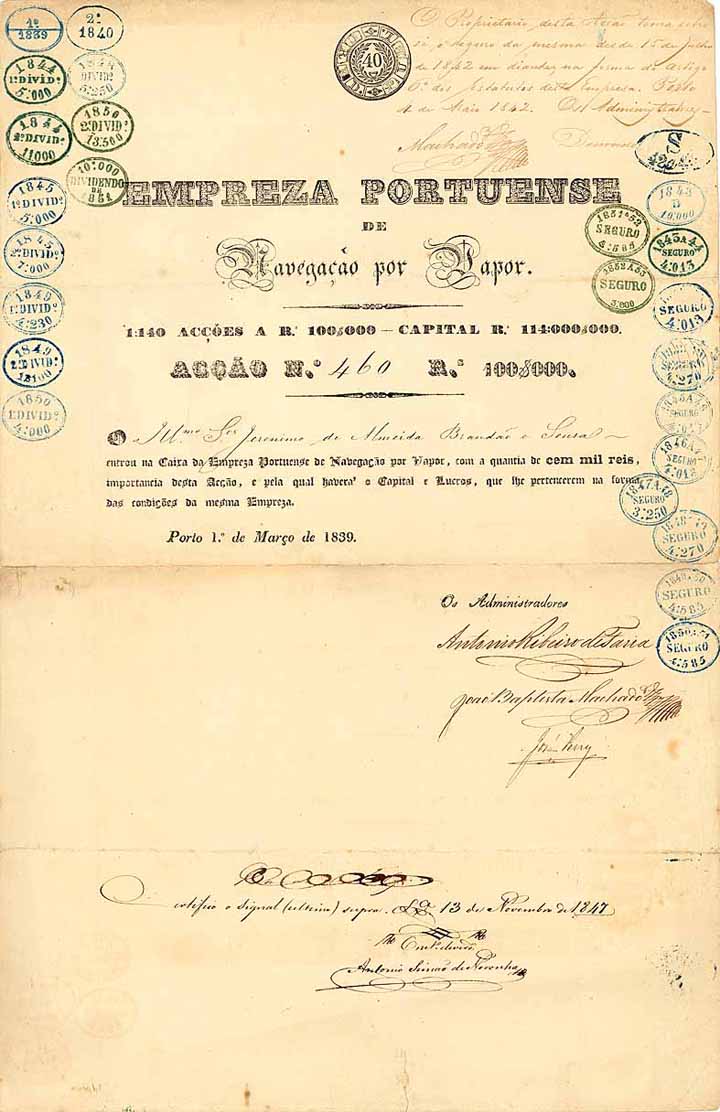 1º
1839
2º
1840
1844
1º DIVIDº
5:000
DIVIDº
5:250
1844
2º DIVIDº
11000
1850
2º DIVIDº
13:500
10:000
DIVIDENDO
DE
1851
1845
1º DIVIDº
5:000
1845
2º DIVIDº
7:000
1849
1º DIVIDº
4:230
1849
2º DIVIDº
1850
1º DIVIDº
4:000
40
O Proprietario desta Acção toma sobre
si o seguro da mesma desde 15 de Julho
de 1842 em diante, na forma do Artigo
6º dos Estatutos desta Empresa. Porto
4 de Maio 1842. Os Administradores
Machado
EMPREZA PORTUENSE
DE
Navegação por Vapor.
1:140 ACÇÕES A R.ˢ 100$000 — CAPITAL R.ˢ 114:000$000.
ACÇÃO N.º 460 R.ˢ 100$000.
O Illmo Snr Jeronimo de Almeida Brandão e Sousa
entrou na Caixa da Empreza Portuense de Navegação por Vapor, com a quantia de cem mil reis,
importancia desta Acção, e pela qual haverá o Capital e Lucros, que lhe pertencerem na forma
das condições da mesma Empreza.
Porto 1.º de Março de 1839.
1843
D
10,000
1851 a 52
SEGURO
4:585
1843 A 44
SEGURO
4:013
1852 A 53
SEGURO
SEGURO
4:013
4:270
SEGURO
1846 A 47
SEGURO
4:013
1847 A 48
SEGURO
3:250
SEGURO
4:270
SEGURO
4:585
1850 A 51
SEGURO
4:585
Os Administradores
Antonio Ribeiro de Faria
João Baptista Machado
13 de Novembro de 1847
Antonio Simão de Noronha